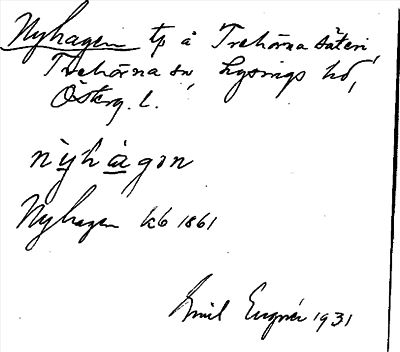 Nyhagen tp å Trehörna säteri,
Trehörna sn, Lysings hd,
Österg. l.
nỳhàgən
Nyhagen kb 1861
Emil 1931